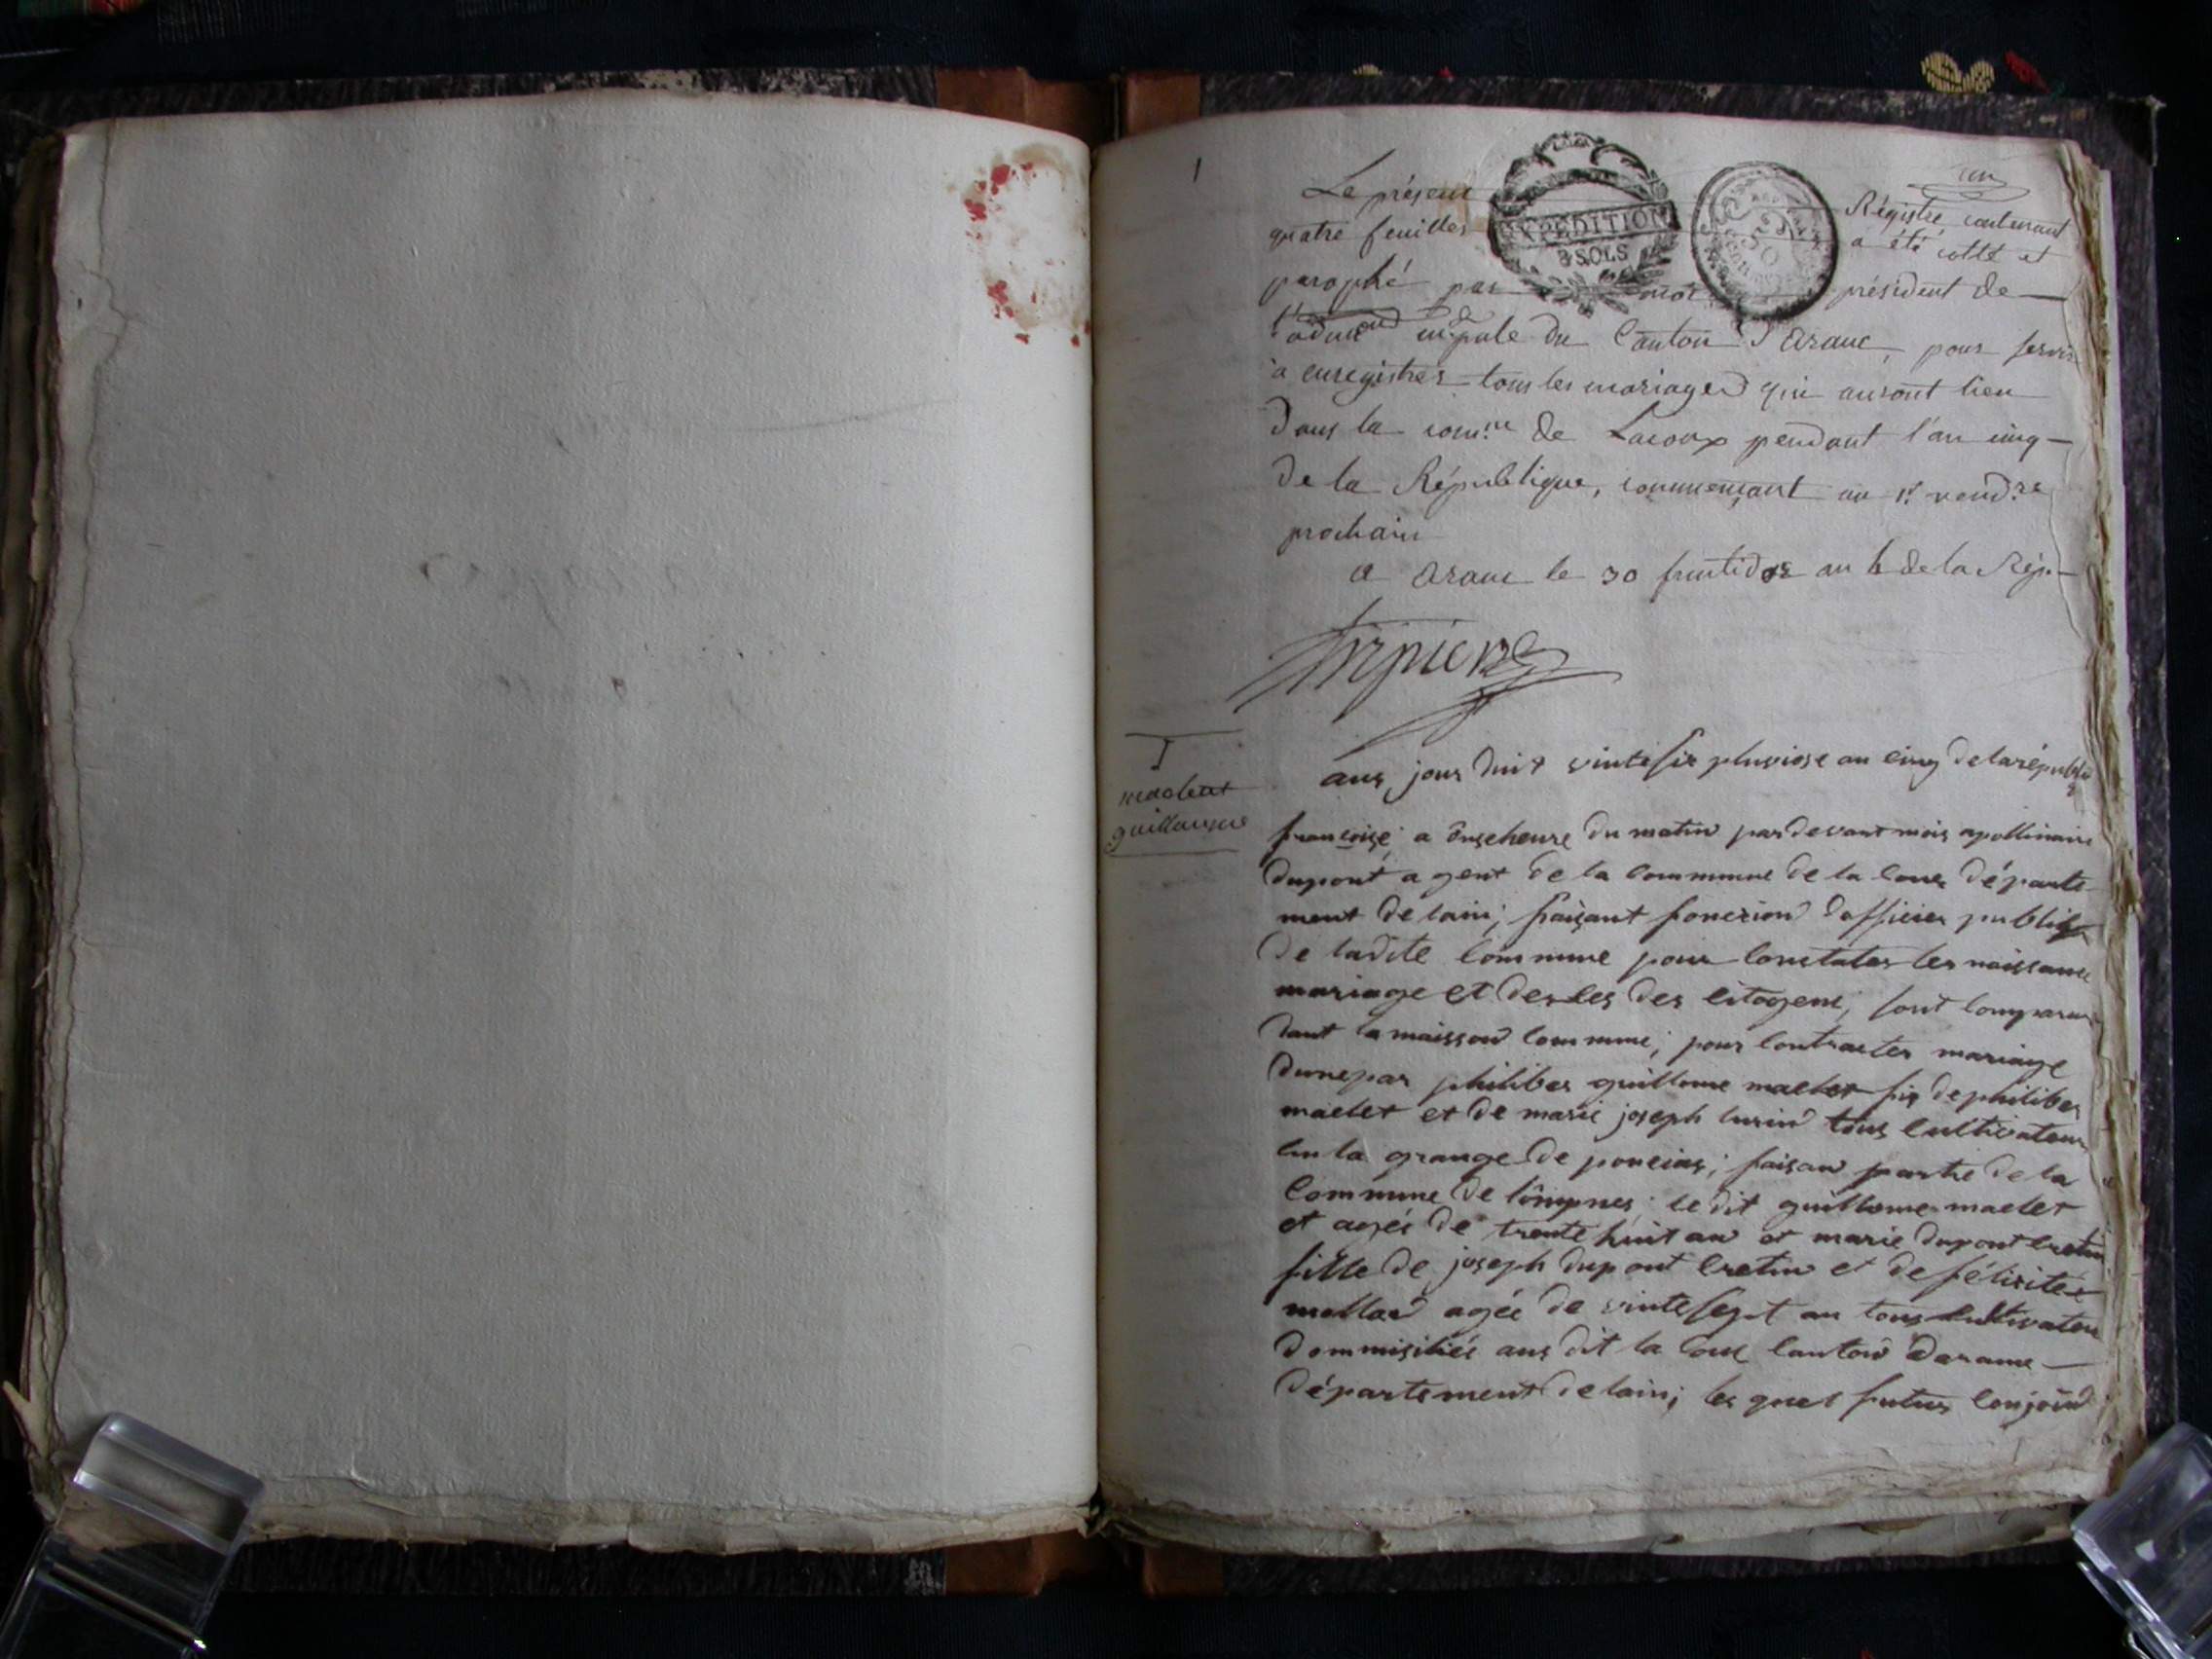 1
un
Le présent Régistre contenant
EXPEDITION
8 SOLS
quatre feuilles a été cotté et
parophé par moi président de
l'admon mpale du Canton d'Aranc, pour servir
a enregistrer tous les mariages qui auront lieu
dans la comne de Lacoux pendant l'an cinq
de la République, commençant au 1er vendre
prochain
a Aranc le 30 fructidor an 4 de la Rép.
I
maclet
guillaume
aus jour duit vinte six pluviose an cinq de la républi
françoise; a onse heure du matin par devant mois apollinaire
dupont agent de la commune de la coux départe
ment de lain; faiçant foncxion d'afficier publiq
de ladite commune pour constater les naissance
mariage et desces des citogens; sont comparus
dant la maisson commune; pour contracter mariage
dunepar philiber guillome maclet fis de philiber
maclet et de marie joseph lurin tous cultivateur
en la grange de poncias; faisan partie de la
commune de lompnes; le dit guillome maclet
et agés de trente huit an et marie dupont cretin
fille de joseph dupont cretin et de félisités
mollard agée de vinte sept an tous cultivateur
dommisiliés aus dit la coux canton daranc
département de lain; les quel futur conjoind